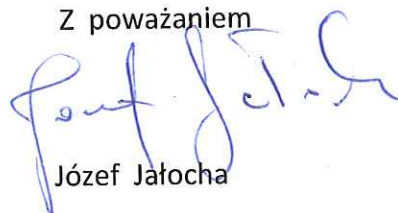 Z poważaniem
Józef Jałocha